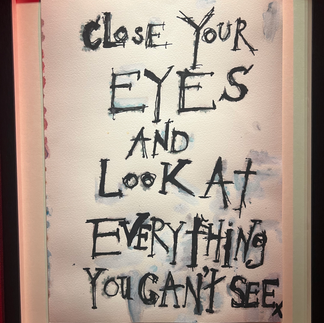 CLOSE YOUR
EYES
AND
LOOK At
EVERYTHING
YOU CAN'T SEE x